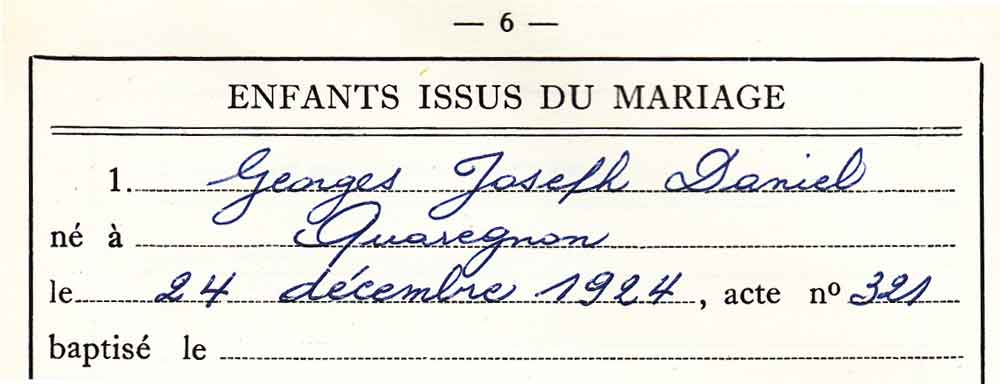 — 6 —
ENFANTS ISSUS DU MARIAGE
1. Georges Joseph Daniel
né à Quaregnon
le 24 décembre 1924, acte nº 321
baptisé le